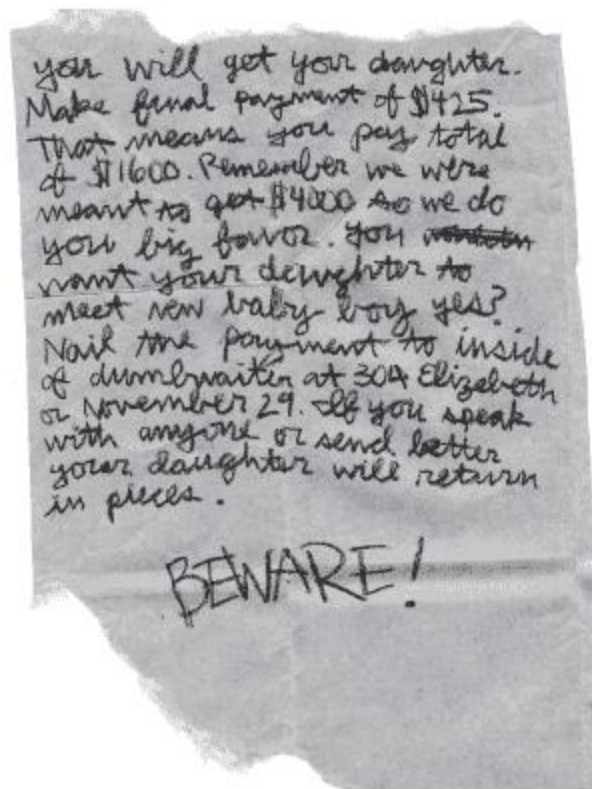 you will get your daughter.
Make final payment of $425.
That means you pay total
of $1600. Remember we were
meant to get $4000 so we do
you big favor. You
want your daughter to
meet new baby boy yes?
Nail the payment to inside
of dumbwaiter at 304 Elizabeth
on November 29. If you speak
with anyone or send letter
your daughter will return
in pieces.
BEWARE!